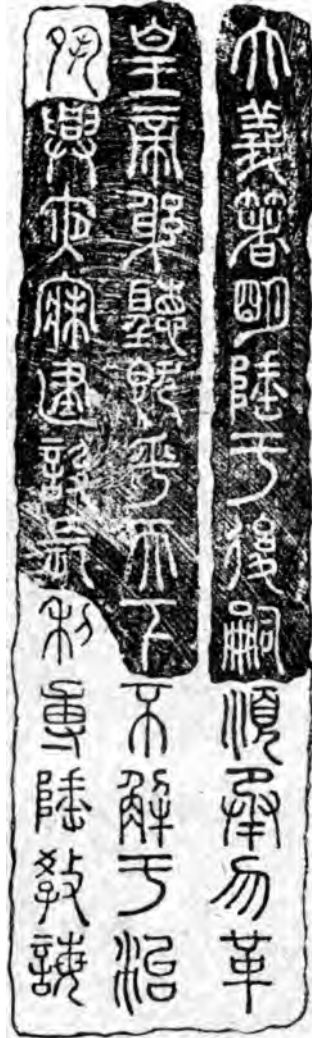 大義箸明陲于後嗣順承勿革
皇帝躬聽既平天下不解于治
夙興夜寐建設長利專隆教誨